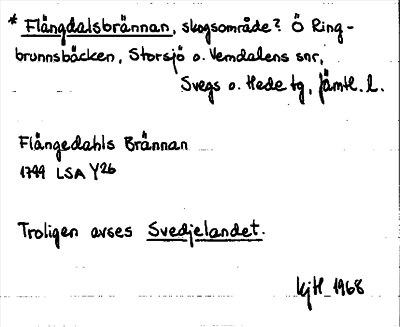 * Flångdalsbrännan, skogsområde? Ö Ring-
brunnsbäcken, Storsjö o. Vemdalens snr,
Svegs o. Hede tg, Jämtl. l.
Flångedahls Brännan
1799 LSA Y26
Troligen avses Svedjelandet.
KjH 1968